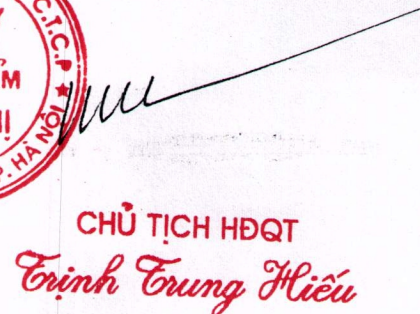 C.T.C.P ★
M
P. HÀ NỘI
CHỦ TỊCH HĐQT
Trịnh Trung Hiếu